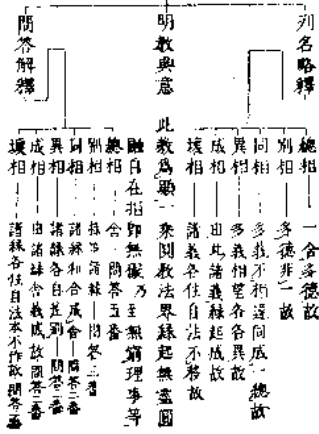 列名略釋
總相 一含多德故
別相 多德非一故
同相 多義不相違同成一總故
異相 多義相望各各異故
成相 由此諸義緣起成故
壞相 諸義各住自法不移故
明教興意 此教為顯一乘圓教法界緣起無盡圓
融自在相即無礙乃至無窮理事等
問答解釋
總相 舍 問答五番
別相 諸緣 問答三番
同相 諸緣和合成舍 問答二番
異相 諸緣各自差別 問答三番
成相 由諸緣舍義成故問答二番
壞相 諸緣各住自法本不作故問答二番